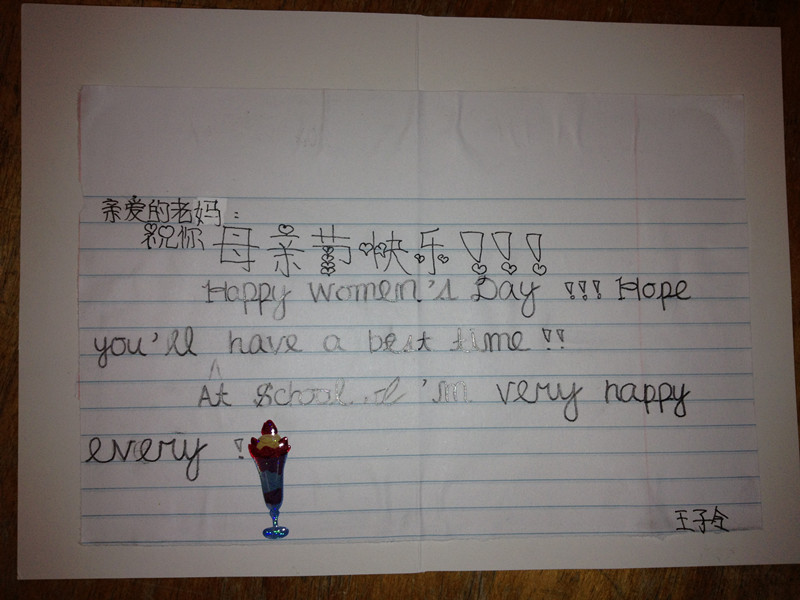 亲爱的老妈：
祝你母亲节快乐！！！
Happy Women's Day !!! Hope
you'll have a best time !!
At School, I'm very happy
every !
王子令